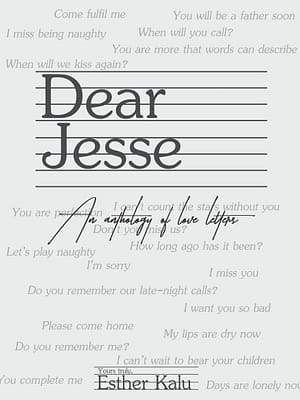 Come fulfil me
You will be a father soon
I miss being naughty
When will you call?
You are more that words can describe
When will we kiss again?
Dear
Jesse
I can't count the stars without you
You are perfection
An anthology of love letters
Don't you miss us?
How long ago has it been?
Let's play naughty
I'm sorry
I miss you
Do you remember our late-night calls?
I want you so bad
Please come home
My lips are dry now
Do you remember me?
I can't wait to bear your children
Yours truly,
You complete me
Esther Kalu
Days are lonely now